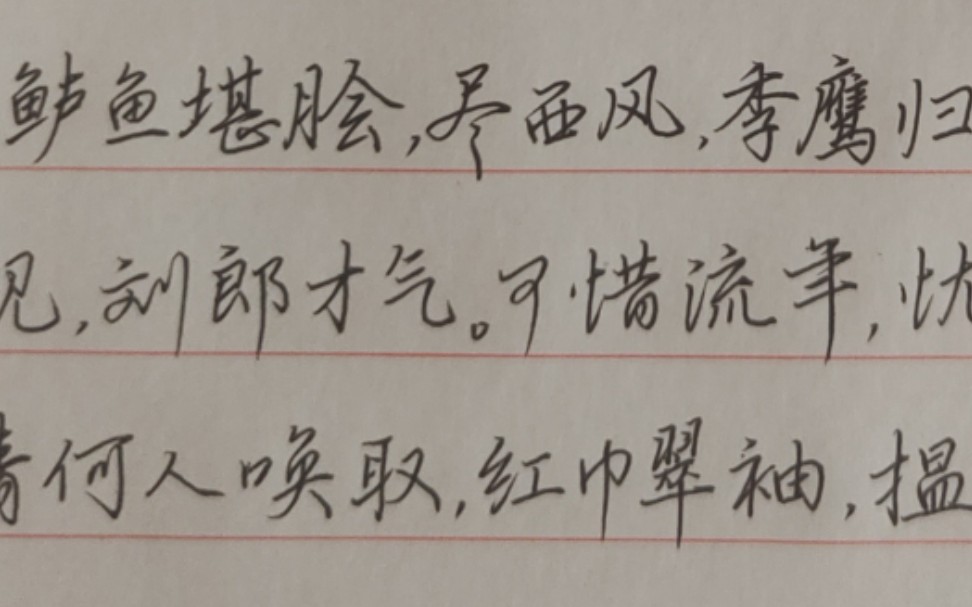 鲈鱼堪脍,尽西风,季鹰归
见,刘郎才气。可惜流年,忧
倩何人唤取,红巾翠袖,揾